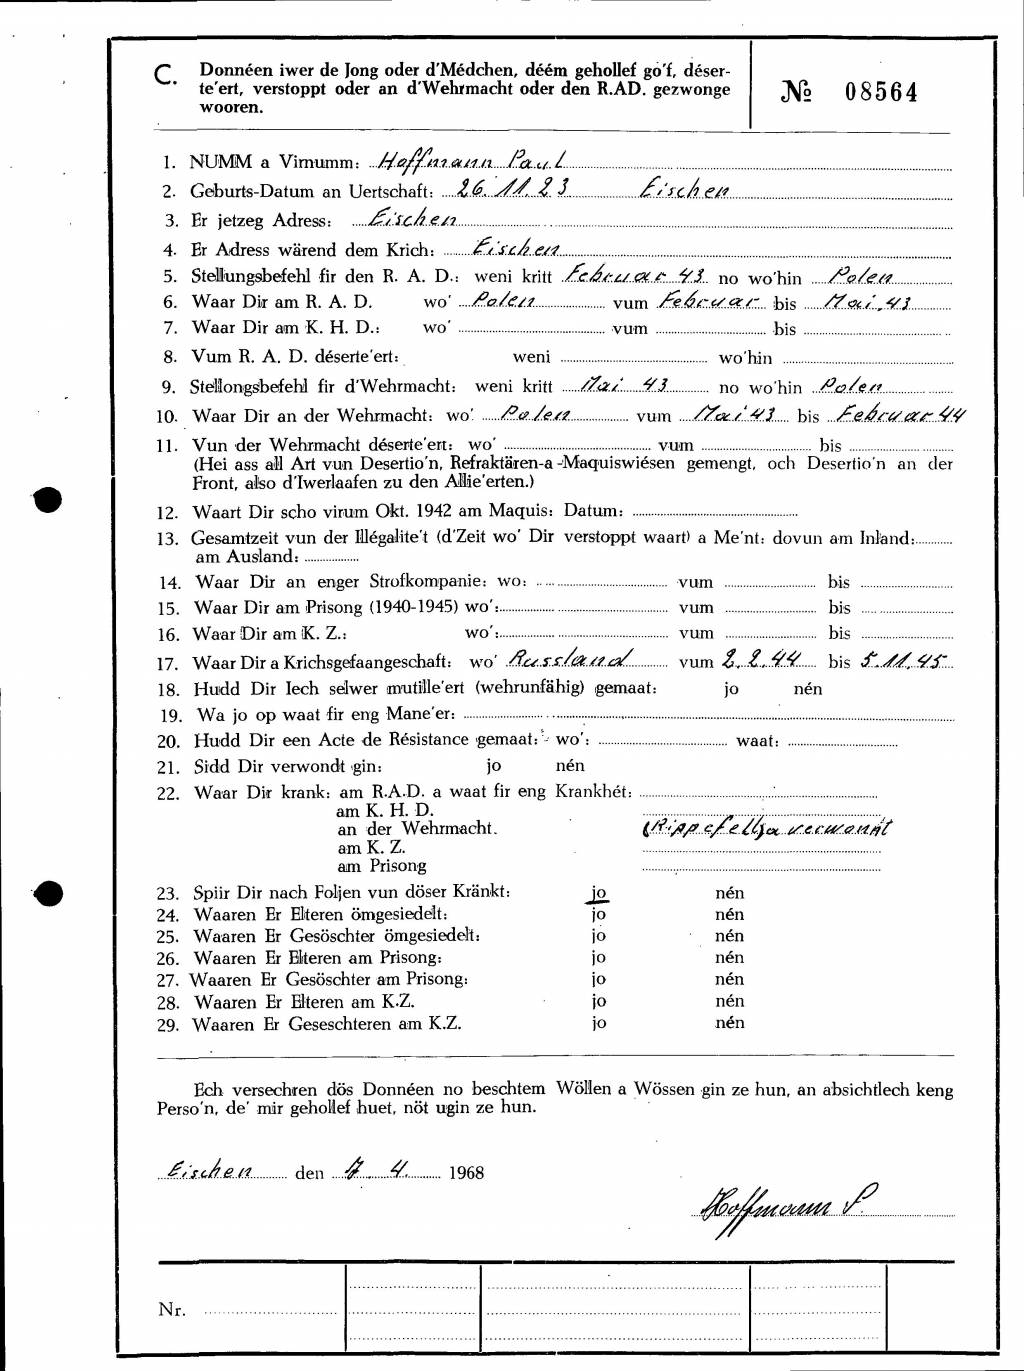 C. Donnéen iwer de Jong oder d'Médchen, déém gehollef go'f, déser-
te'ert, verstoppt oder an d'Wehrmacht oder den R.AD. gezwonge
wooren.
№ 08564
1. NUMM a Virnumm: Hoffmann Paul
2. Geburts-Datum an Uertschaft: 26.11.23 Eischen
3. Er jetzeg Adress: Eischen
4. Er Adress wärend dem Krich: Eischen
5. Stellungsbefehl fir den R. A. D.: weni kritt Februar 43 no wo'hin Polen
6. Waar Dir am R. A. D. wo' Polen vum Februar bis Mai.43
7. Waar Dir am K. H. D.: wo' vum bis
8. Vum R. A. D. déserte'ert: weni wo'hin
9. Stellongsbefehl fir d'Wehrmacht: weni kritt Mai 43 no wo'hin Polen
10. Waar Dir an der Wehrmacht: wo' Polen vum Mai 43 bis Februar 44
11. Vun der Wehrmacht déserte'ert: wo' vum bis
(Hei ass all Art vun Desertio'n, Refraktären-a -Maquiswiésen gemengt, och Desertio'n an der
Front, also d'Iwerlaafen zu den Allie'erten.)
12. Waart Dir scho virum Okt. 1942 am Maquis: Datum:
13. Gesamtzeit vun der Illégalite't (d'Zeit wo' Dir verstoppt waart) a Me'nt: dovun am Inland:
am Ausland:
14. Waar Dir an enger Strofkompanie: wo: vum bis
15. Waar Dir am Prisong (1940-1945) wo': vum bis
16. Waar Dir am K. Z.: wo': vum bis
17. Waar Dir a Krichsgefaangeschaft: wo' Russland vum 2.2.44 bis 5.11.45
18. Hudd Dir Iech selwer mutille'ert (wehrunfähig) gemaat: jo nén
19. Wa jo op waat fir eng Mane'er:
20. Hudd Dir een Acte de Résistance gemaat: wo': waat:
21. Sidd Dir verwondt gin: jo nén
22. Waar Dir krank: am R.A.D. a waat fir eng Krankhét:
am K. H. D.
an der Wehrmacht. (Rippefell ja verwonnt
am K. Z.
am Prisong
23. Spiir Dir nach Foljen vun döser Kränkt: jo nén
24. Waaren Er Elteren ömgesiedelt: jo nén
25. Waaren Er Gesöschter ömgesiedelt: jo nén
26. Waaren Er Elteren am Prisong: jo nén
27. Waaren Er Gesöschter am Prisong: jo nén
28. Waaren Er Elteren am K.Z. jo nén
29. Waaren Er Geseschteren am K.Z. jo nén
Ech versechren dös Donnéen no beschtem Wöllen a Wössen gin ze hun, an absichtlech keng
Perso'n, de' mir gehollef huet, nöt ugin ze hun.
Eischen den 7. 4. 1968
Hoffmann P.
Nr.